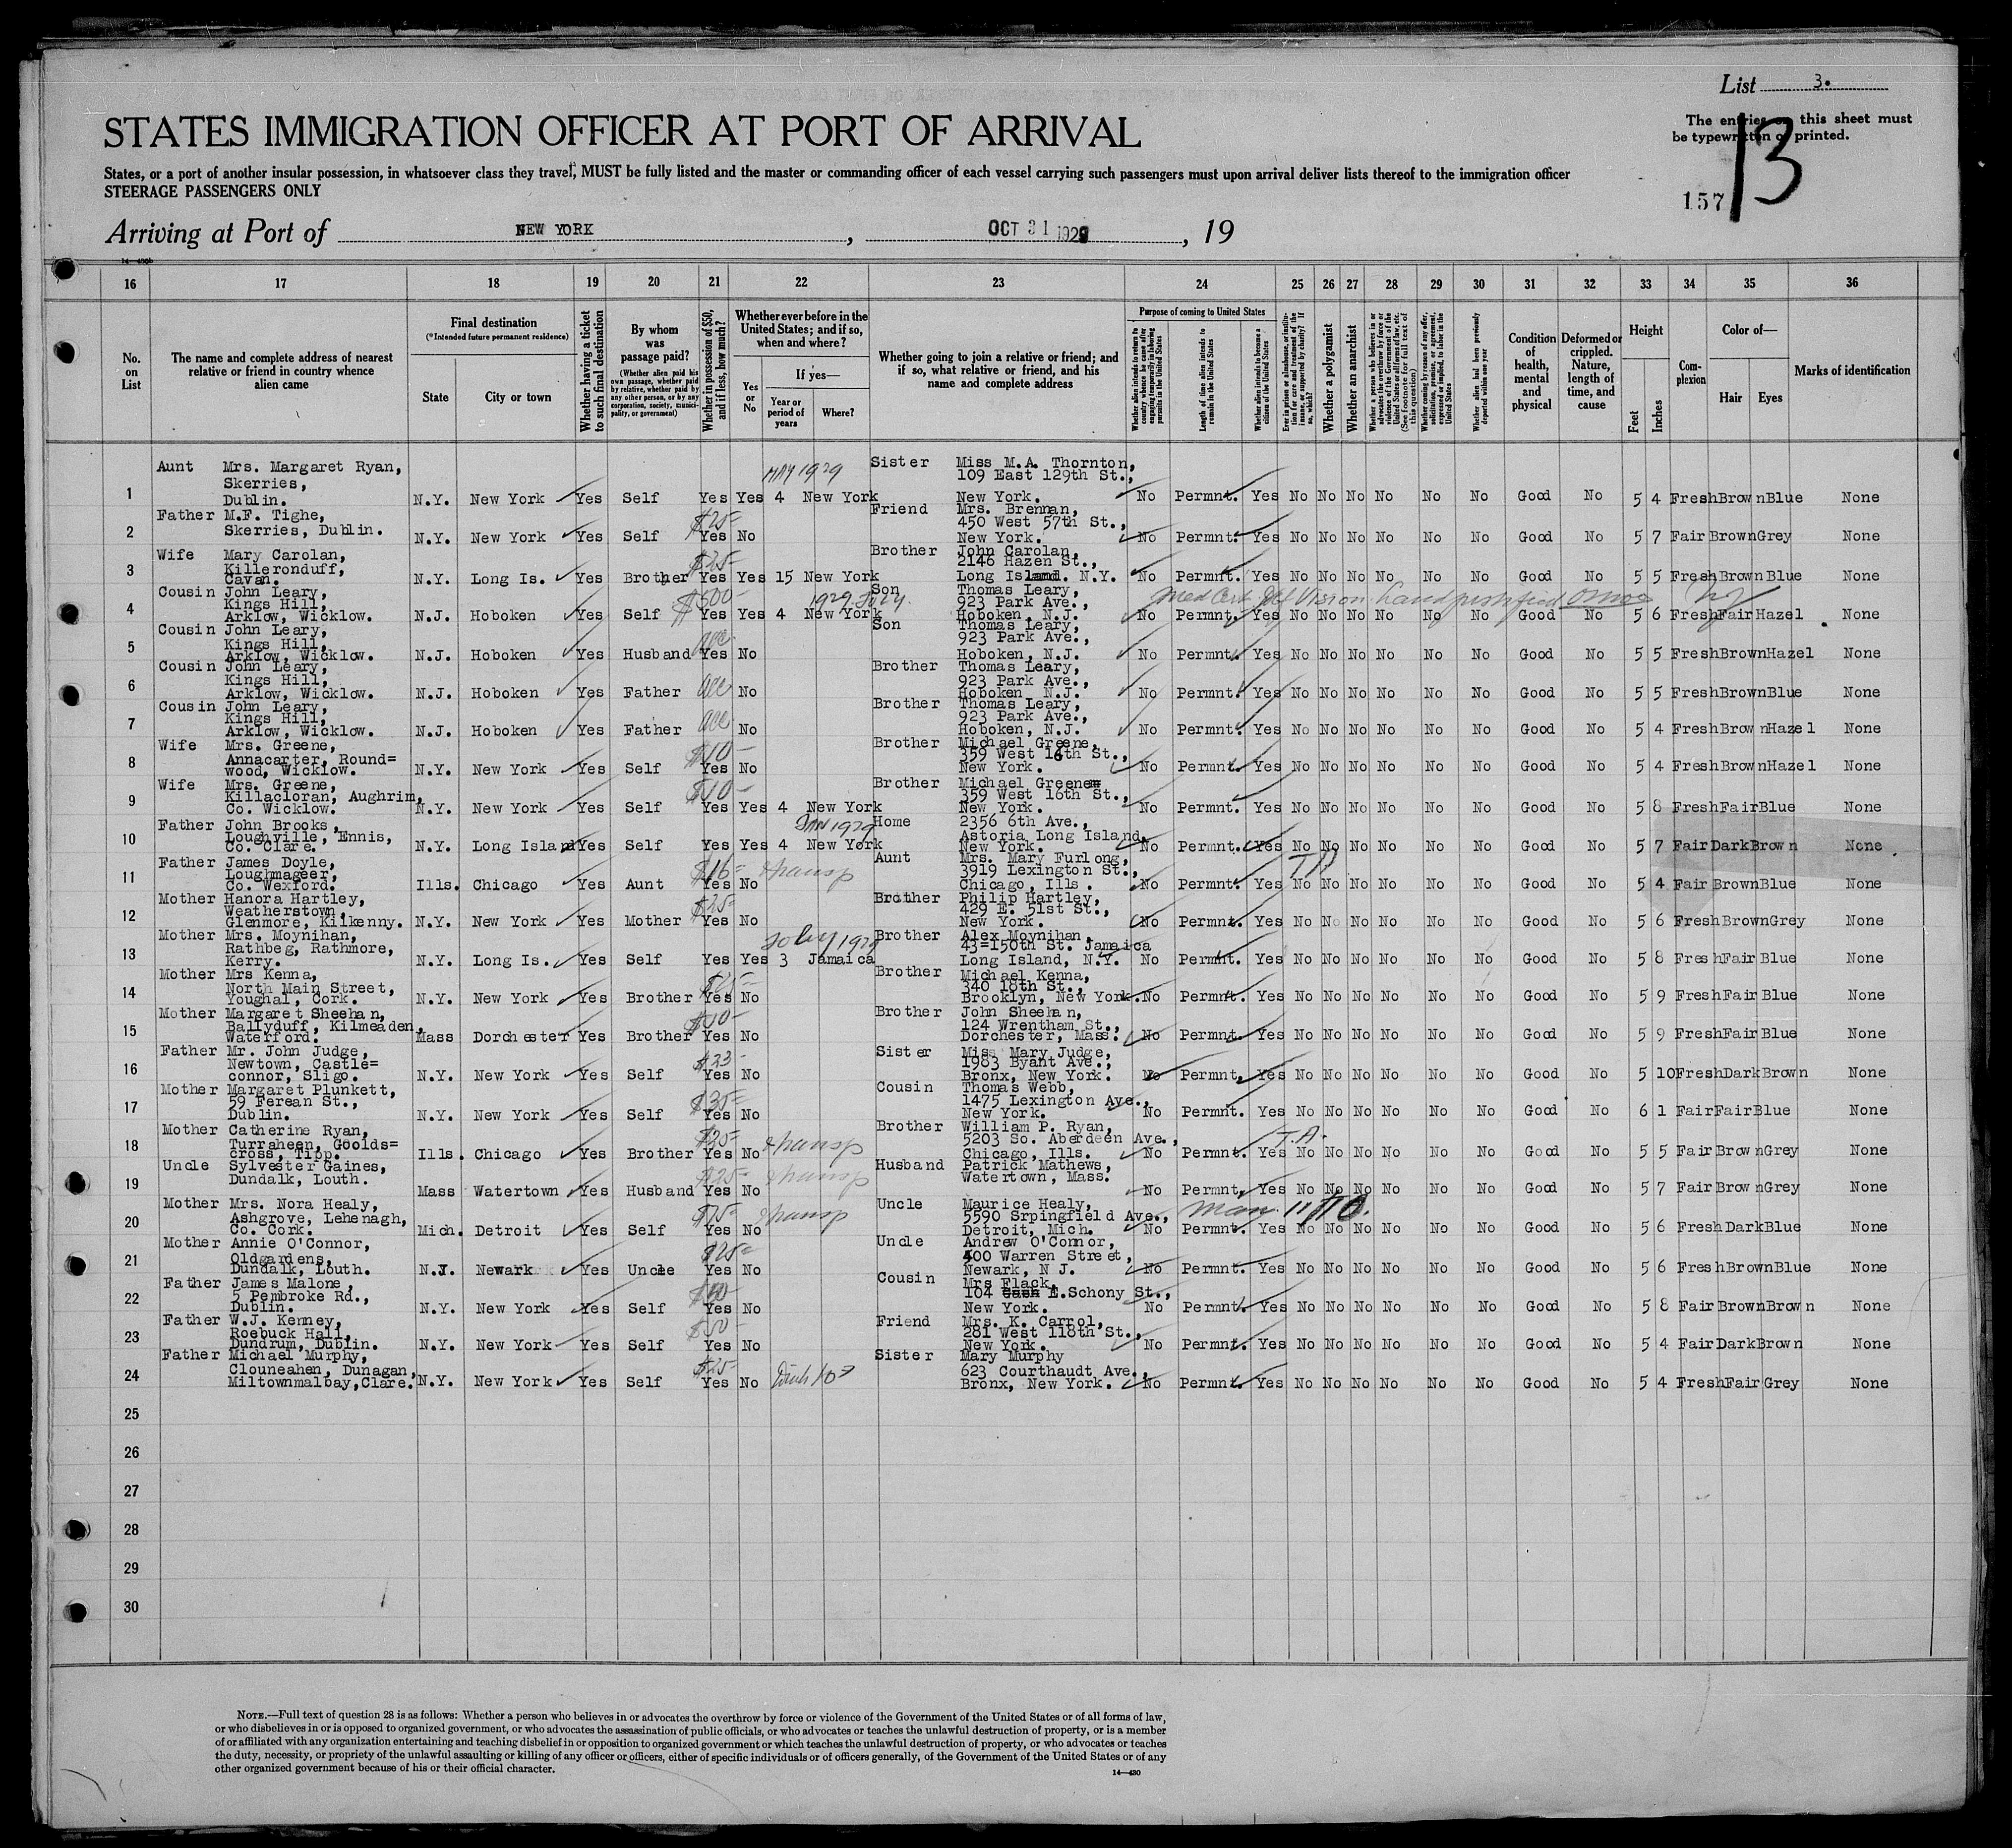 List 3.
STATES IMMIGRATION OFFICER AT PORT OF ARRIVAL
The entries on this sheet must
be typewritten or printed.
13
157
States, or a port of another insular possession, in whatsoever class they travel, MUST be fully listed and the master or commanding officer of each vessel carrying such passengers must upon arrival deliver lists thereof to the immigration officer
STEERAGE PASSENGERS ONLY
Arriving at Port of NEW YORK , OCT 31 1929 , 19
14—430b
16 17 18 19 20 21 22 23 24 25 26 27 28 29 30 31 32 33 34 35 36
No. on List
The name and complete address of nearest relative or friend in country whence alien came
Final destination
(*Intended future permanent residence)
State
City or town
Whether having a ticket to such final destination
By whom was passage paid?
(Whether alien paid his own passage, whether paid by relative, whether paid by any other person, or by any corporation, society, municipality, or government)
Whether in possession of $50, and if less, how much?
Whether ever before in the United States; and if so, when and where?
Yes or No
If yes—
Year or period of years
Where?
Whether going to join a relative or friend; and if so, what relative or friend, and his name and complete address
Purpose of coming to United States
Whether alien intends to return to country whence he came after engaging temporarily in laboring pursuits in the United States
Length of time alien intends to remain in the United States
Whether alien intends to become a citizen of the United States
Ever in prison or almshouse, or institution for care and treatment of the insane, or supported by charity? If so, which?
Whether a polygamist
Whether an anarchist
Whether a person who believes in or advocates the overthrow by force or violence of the Government of the United States or all forms of law, etc. (See footnote for full text of this question)
Whether coming by reason of any offer, solicitation, promise, or agreement, expressed or implied, to labor in the United States
Whether alien had been previously deported within one year
Condition of health, mental and physical
Deformed or crippled. Nature, length of time, and cause
Height
Feet
Inches
Complexion
Color of—
Hair
Eyes
Marks of identification
Aunt Mrs. Margaret Ryan, MAY 1929 Sister Miss M.A. Thornton,
Skerries, 109 East 129th St.,
1 Dublin. N.Y. New York Yes Self Yes Yes 4 New York New York. No Permnt. Yes No No No No No No Good No 5 4 Fresh Brown Blue None
Father M.F. Tighe, $25- Friend Mrs. Brennan,
Skerries, Dublin. 450 West 57th St.,
2 N.Y. New York Yes Self Yes No New York. No Permnt. Yes No No No No No No Good No 5 7 Fair Brown Grey None
Wife Mary Carolan, $25- Brother John Carolan,
Killeronduff, 2146 Hazen St.,
3 Cavan. N.Y. Long Is. Yes Brother Yes Yes 15 New York Long Island. N.Y. No Permnt. Yes No No No No No No Good No 5 5 Fresh Brown Blue None
Cousin John Leary, $500- 1929 July. Son Thomas Leary,
Kings Hill, 923 Park Ave., Med Cert Def Vision
4 Arklow, Wicklow. N.J. Hoboken Yes Self Yes Yes 4 New York Hoboken, N.J. No Permnt. Yes No No No No No No Good No 5 6 Fresh Fair Hazel None
Cousin John Leary, Son Thomas Leary,
Kings Hill, 923 Park Ave.,
5 Arklow, Wicklow. N.J. Hoboken Yes Husband Yes No Hoboken, N.J. No Permnt. Yes No No No No No No Good No 5 5 Fresh Brown Hazel None
Cousin John Leary, Brother Thomas Leary,
Kings Hill, 923 Park Ave.,
6 Arklow, Wicklow. N.J. Hoboken Yes Father No Hoboken N.J. No Permnt. Yes No No No No No No Good No 5 5 Fresh Brown Blue None
Cousin John Leary, Brother Thomas Leary,
Kings Hill, 923 Park Ave.,
7 Arklow, Wicklow. N.J. Hoboken Yes Father No Hoboken, N.J. No Permnt. Yes No No No No No No Good No 5 4 Fresh Brown Hazel None
Wife Mrs. Greene, $10- Brother Michael Greene,
Annacarter, Round= 359 West 16th St.,
8 wood, Wicklow. N.Y. New York Yes Self Yes No New York. No Permnt. Yes No No No No No No Good No 5 4 Fresh Brown Hazel None
Wife Mrs. Greene, $10- Brother Michael Greene
Killacloran, Aughrim, 359 West 16th St.,
9 Co. Wicklow. N.Y. New York Yes Self Yes Yes 4 New York New York. No Permnt. Yes No No No No No No Good No 5 8 Fresh Fair Blue None
Father John Brooks, JAN 1929 Home 2356 6th Ave.,
Loughville, Ennis, Astoria Long Island,
10 Co. Clare. N.Y. Long Island Yes Self Yes Yes 4 New York New York. No Permnt. Yes No No No No No No Good No 5 7 Fair Dark Brown None
Father James Doyle, $16- transp Aunt Mrs. Mary Furlong,
Loughmageer, 3919 Lexington St.,
11 Co. Wexford. Ills. Chicago Yes Aunt Yes No Chicago, Ills. No Permnt. Yes No No No No No No Good No 5 4 Fair Brown Blue None
Mother Hanora Hartley, $25- Brother Philip Hartley,
Weatherstown, 429 E. 51st St.,
12 Glenmore, Kilkenny. N.Y. New York Yes Mother Yes No New York. No Permnt. Yes No No No No No No Good No 5 6 Fresh Brown Grey None
Mother Mrs. Moynihan, July 1929 Brother Alex Moynihan,
Rathbeg, Rathmore, 43=150th St. Jamaica
13 Kerry. N.Y. Long Is. Yes Self Yes Yes 3 Jamaica Long Island, N.Y. No Permnt. Yes No No No No No No Good No 5 8 Fresh Fair Blue None
Mother Mrs Kenna, $25- Brother Michael Kenna,
North Main Street, 340 18th St.,
14 Youghal, Cork. N.Y. New York Yes Brother Yes No Brooklyn, New York. No Permnt. Yes No No No No No No Good No 5 9 Fresh Fair Blue None
Mother Margaret Sheehan, $30- Brother John Sheehan,
Ballyduff, Kilmeaden, 124 Wrentham St.,
15 Waterford. Mass Dorchester Yes Brother Yes No Dorchester, Mass. No Permnt. Yes No No No No No No Good No 5 9 Fresh Fair Blue None
Father Mr. John Judge, $33- Sister Miss Mary Judge,
Newtown, Castle= 1983 Byant Ave.,
16 connor, Sligo. N.Y. New York Yes Self Yes No Bronx, New York. No Permnt. Yes No No No No No No Good No 5 10 Fresh Dark Brown None
Mother Margaret Plunkett, $35- Cousin Thomas Webb,
59 Ferean St., 1475 Lexington Ave.,
17 Dublin. N.Y. New York Yes Self Yes No New York. No Permnt. Yes No No No No No No Good No 6 1 Fair Fair Blue None
Mother Catherine Ryan, $25- Brother William P. Ryan,
Turraheen, Goolds= transp 5203 So. Aberdeen Ave., T.A.
18 cross, Tipp. Ills. Chicago Yes Brother Yes No Chicago, Ills. No Permnt. Yes No No No No No No Good No 5 5 Fair Brown Grey None
Uncle Sylvester Gaines, $25- transp Husband Patrick Mathews,
Dundalk, Louth. Watertown, Mass.
19 Mass Watertown Yes Husband Yes No No Permnt. Yes No No No No No No Good No 5 7 Fair Brown Grey None
Mother Mrs. Nora Healy, $75- transp Uncle Maurice Healy,
Ashgrove, Lehenagh, 5590 Srpingfield Ave.,
20 Co. Cork. Mich. Detroit Yes Self Yes No Detroit, Mich. No Permnt. Yes No No No No No No Good No 5 6 Fresh Dark Blue None
Mother Annie O'Connor, $25- Uncle Andrew O'Connor,
Oldgardens, 400 Warren Street,
21 Dundalk, Louth. N.J. Newark Yes Uncle Yes No Newark, N J. No Permnt. Yes No No No No No No Good No 5 6 Fresh Brown Blue None
Father James Malone, Cousin Mrs Flack,
5 Pembroke Rd., 104 E.Schony St.,
22 Dublin. N.Y. New York Yes Self Yes No New York. No Permnt. Yes No No No No No No Good No 5 8 Fair Brown Brown None
Father W.J. Kenney, $50- Friend Mrs. K. Carrol,
Roebuck Hall, 281 West 118th St.,
23 Dundrum, Dublin. N.Y. New York Yes Self Yes No New York. No Permnt. Yes No No No No No No Good No 5 4 Fair Dark Brown None
Father Michael Murphy, $25- Sister Mary Murphy
Clouneahen, Dunagan, 623 Courthaudt Ave.,
24 Miltownmalbay,Clare. N.Y. New York Yes Self Yes No Bronx, New York. No Permnt. Yes No No No No No No Good No 5 4 Fresh Fair Grey None
25
26
27
28
29
30
NOTE.—Full text of question 28 is as follows: Whether a person who believes in or advocates the overthrow by force or violence of the Government of the United States or of all forms of law,
or who disbelieves in or is opposed to organized government, or who advocates the assassination of public officials, or who advocates or teaches the unlawful destruction of property, or is a member
of or affiliated with any organization entertaining and teaching disbelief in or opposition to organized government or which teaches the unlawful destruction of property, or who advocates or teaches
the duty, necessity, or propriety of the unlawful assaulting or killing of any officer or officers, either of specific individuals or of officers generally, of the Government of the United States or of any
other organized government because of his or their official character.
14—430